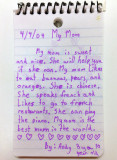 9/9/09 My Mom
My mom is sweet
and nice. She will help you
if she can. My mom likes
to eat bananas, pears, and
oranges. She is chinese.
She speaks french and
likes to go to french
restaurants. She can play
the piano. My mom is the
best mom in the world.
By: Ruby